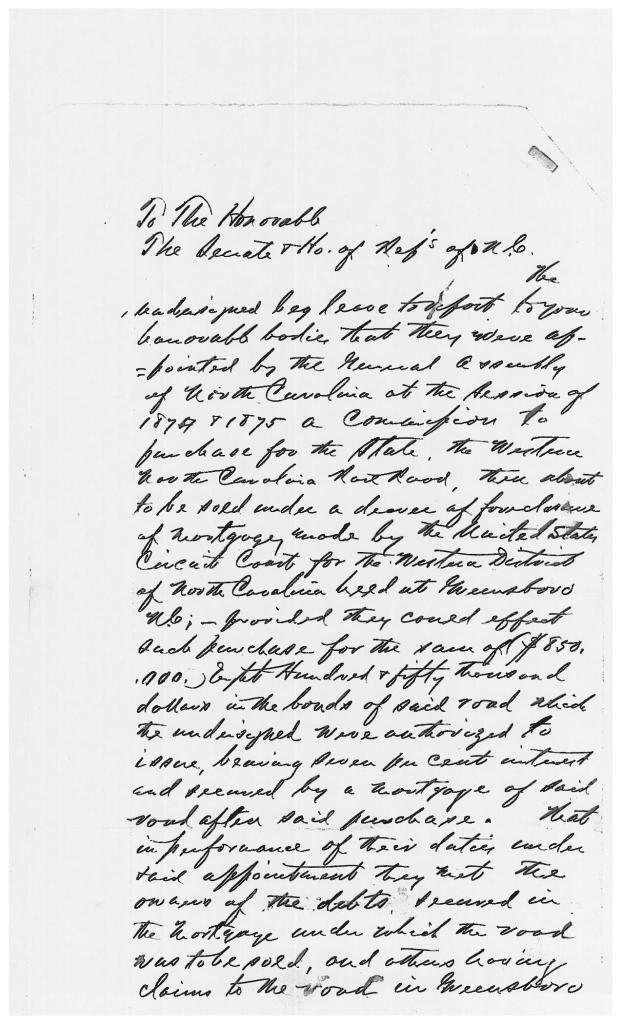 To The Honorable
The Senate & Ho. of Rep's of N.C.
The
undersigned beg leave to report to your
honorable bodies that they were ap-
=pointed by the General Assembly
of North Carolina at the Session of
1874 & 1875 a Commission to
purchase for the State, the Western
North Carolina Rail Road, then about
to be sold under a decree of foreclosure
of mortgage, made by the United States
Circuit Court for the Western District
of North Carolina held at Greensboro
N.C; – provided they could effect
such purchase for the sum of ($850,
,000.) Eight Hundred & fifty thousand
dollars in the bonds of said road which
the undersigned were authorized to
issue, bearing seven per cent interest
and secured by a mortgage of said
road after said purchase. That
in performance of their duties under
said appointment they met the
owners of the debts secured in
the Mortgage under which the road
was to be sold, and others having
claims to the road in Greensboro